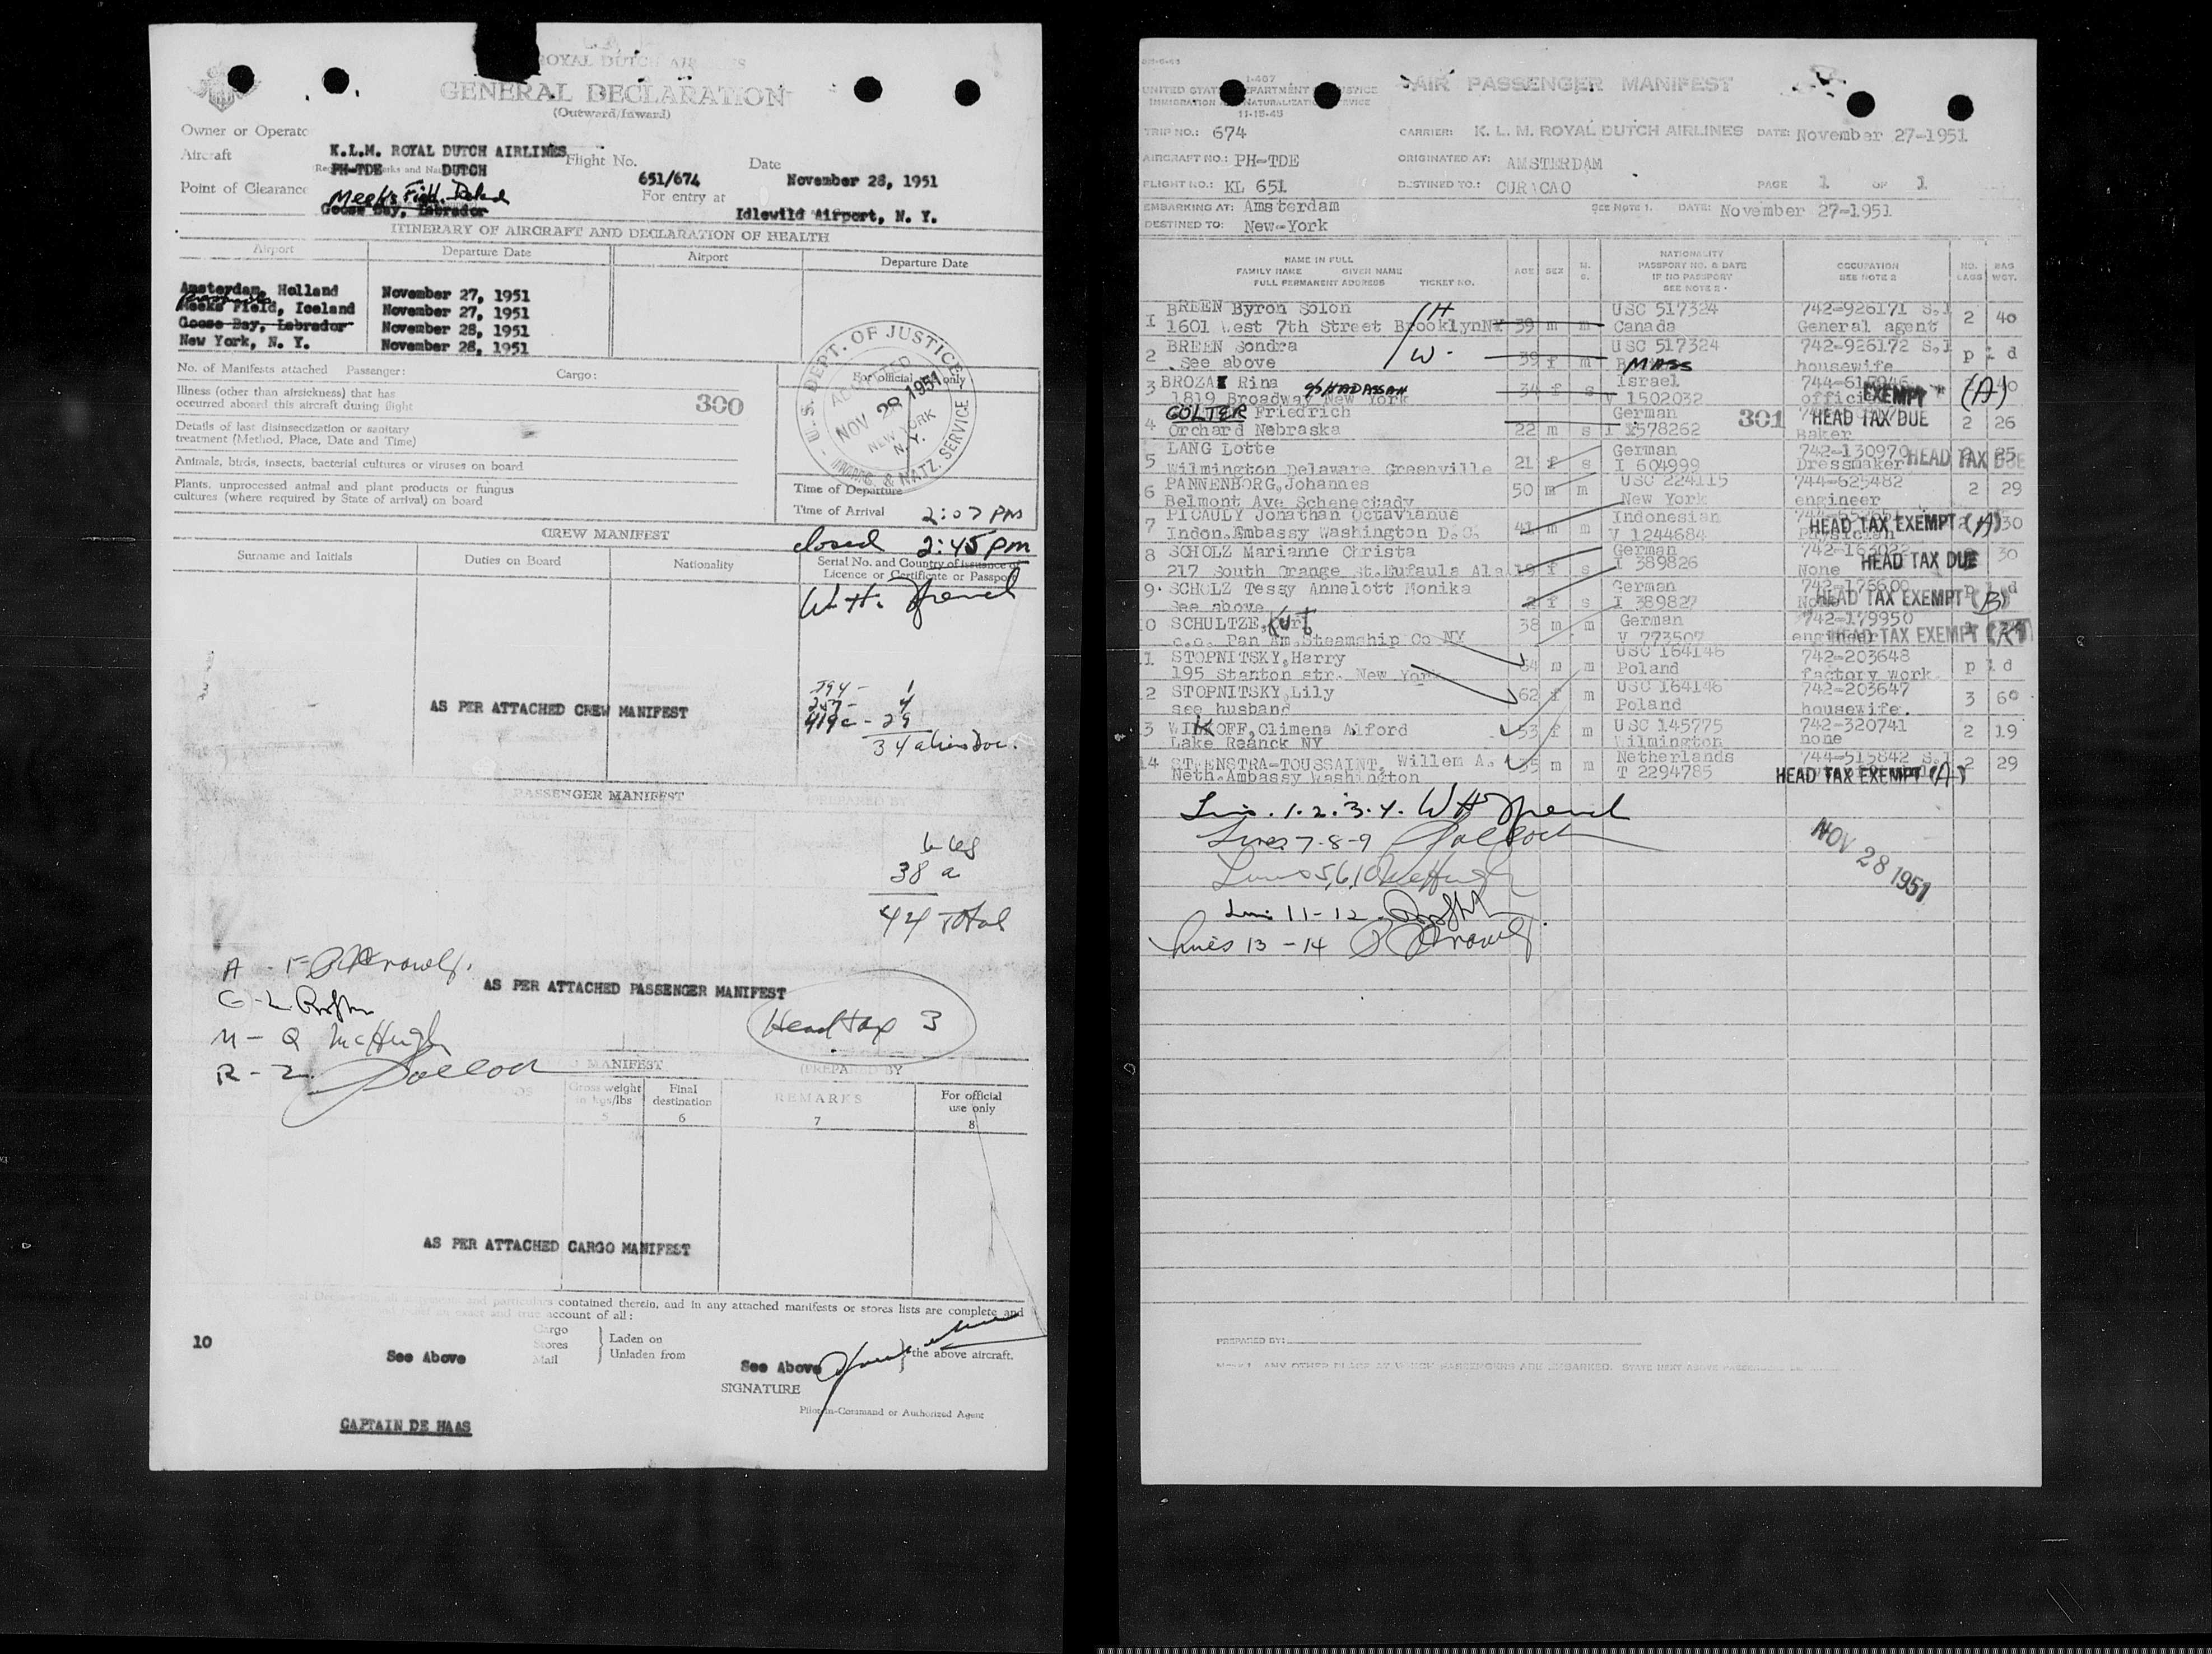 ROYAL DUTCH AIRLINES
GENERAL DECLARATION
(Outward/Inward)
Owner or Operator
K.L.M. ROYAL DUTCH AIRLINES
Aircraft
PH-TDE
DUTCH
Flight No.
651/674
Date
November 28, 1951
Point of Clearance
Meeks Field
Goose Bay, Labrador
For entry at
Idlewild Airport, N. Y.
ITINERARY OF AIRCRAFT AND DECLARATION OF HEALTH
Airport Departure Date Airport Departure Date
Amsterdam, Holland November 27, 1951
Meeks Field, Iceland November 27, 1951
Goose Bay, Labrador November 28, 1951
New York, N. Y. November 28, 1951
No. of Manifests attached Passenger: Cargo:
For official use only
Illness (other than airsickness) that has
occurred aboard this aircraft during flight
300
Details of last disinsectization or sanitary
treatment (Method, Place, Date and Time)
Animals, birds, insects, bacterial cultures or viruses on board
Plants, unprocessed animal and plant products or fungus
cultures (where required by State of arrival) on board
U.S. DEPT. OF JUSTICE
ADMITTED
NOV 28 1951
NEW YORK
N.Y.
IMMIG. & NATZ. SERVICE
Time of Departure
Time of Arrival 2:07 PM
closed 2:45 PM
CREW MANIFEST
Surname and Initials Duties on Board Nationality Serial No. and Country of issuance of
Licence or Certificate or Passport
W. H.
AS PER ATTACHED CREW MANIFEST
1
257- 4
419c - 29
34 aliens Doc.
PASSENGER MANIFEST
(PREPARED BY
6
38 a
44 Total
A - F
G - L
M - Q McHugh
R - Z
AS PER ATTACHED PASSENGER MANIFEST
Head tax 3
MANIFEST
(PREPARED BY
Gross weight
in kgs/lbs
5
Final
destination
6
REMARKS
7
For official
use only
8
AS PER ATTACHED CARGO MANIFEST
and particulars contained therein, and in any attached manifests or stores lists are complete and
exact and true account of all:
10
See Above
Cargo
Stores
Mail
Laden on
Unladen from
See Above
the above aircraft.
SIGNATURE
Pilot-in-Command or Authorized Agent
CAPTAIN DE HAAS
I-407
UNITED STATES DEPARTMENT OF JUSTICE
IMMIGRATION & NATURALIZATION SERVICE
11-15-45
AIR PASSENGER MANIFEST
TRIP NO.: 674 CARRIER: K. L. M. ROYAL DUTCH AIRLINES DATE: November 27-1951
AIRCRAFT NO.: PH-TDE ORIGINATED AT: AMSTERDAM
FLIGHT NO.: KL 651 DESTINED TO.: CURACAO PAGE 1 OF 1
EMBARKING AT: Amsterdam SEE NOTE 1. DATE: November 27-1951
DESTINED TO: New-York
NAME IN FULL
FAMILY NAME GIVEN NAME
FULL PERMANENT ADDRESS TICKET NO.
AGE SEX M. S.
NATIONALITY
PASSPORT NO. & DATE
IF NO PASSPORT
SEE NOTE 2
OCCUPATION
SEE NOTE 2
NO. BAGS
BAG WGT.
1 BREEN Byron Solon H USC 517324 742-926171 S.I
1601 West 7th Street BrooklynNY 39 m m Canada General agent 2 40
2 BREEN Sondra W USC 517324 742-926172 S.I
See above 39 f m MASS housewife p l d
3 BROZA Rina c/o HADASSAH 34 f s Israel EXEMPT (A) 40
1819 Broadway New York V 1502032
4 GOLTER Friedrich German 301 HEAD TAX DUE
Orchard Nebraska 22 m s I 578262 Baker 2 26
5 LANG Lotte German 742-130970
Wilmington Delaware Greenville 21 f s I 604999 Dressmaker HEAD TAX DUE 25
6 PANNENBORG, Johannes 50 m m USC 224115 744-625482
Belmont Ave Schenectady New York engineer 2 29
7 PICAULY Jonathan Octavianus Indonesian HEAD TAX EXEMPT (A) 30
Indon.Embassy Washington D.C. 41 m m V 1244684 Physician
8 SCHOLZ Marianne Christa German 30
217 South Orange st.Eufaula Ala 19 f s I 389826 None HEAD TAX DUE
9 SCHOLZ Tessy Annelott Monika German 742-175600 p l d
See above 2 f s I 389827 None HEAD TAX EXEMPT (B)
10 SCHULTZE, Kurt 38 m m German 742-179950
c.o. Pan Am.Steamship Co NY V 773507 engineer HEAD TAX EXEMPT
11 STOPNITSKY, Harry 64 m m USC 164146 742-203648
195 Stanton str. New York Poland factory work p l d
12 STOPNITSKY, Lily 62 f m USC 164146 742-203647
see husband Poland housewife. 3 60
13 WILKOFF, Climena Alford 53 f m USC 145775 742-320741
Lake Reanck NY Wilmington none 2 19
14 STEENSTRA-TOUSSAINT, Willem A. 35 m m Netherlands 744-515842 S.I 2 29
Neth.Ambassy Washington T 2294785 HEAD TAX EXEMPT (A)
Lines 1.2.3.4. W H
Lines 7-8-9
Lines 5,6,10 McHugh
Lines 11-12
Lines 13-14
NOV 28 1951
PREPARED BY: